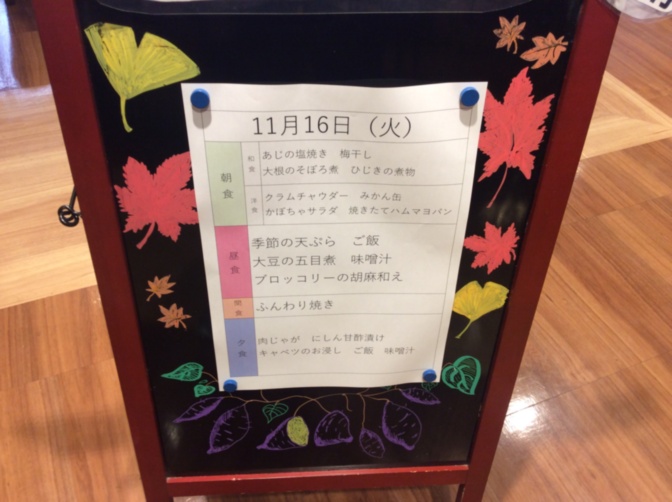 11月16日（火）
朝食
和食
あじの塩焼き　梅干し
大根のそぼろ煮　ひじきの煮物
洋食
クラムチャウダー　みかん缶
かぼちゃサラダ　焼きたてハムマヨパン
昼食
季節の天ぷら　ご飯
大豆の五目煮　味噌汁
ブロッコリーの胡麻和え
間食
ふんわり焼き
夕食
肉じゃが　にしん甘酢漬け
キャベツのお浸し　ご飯　味噌汁